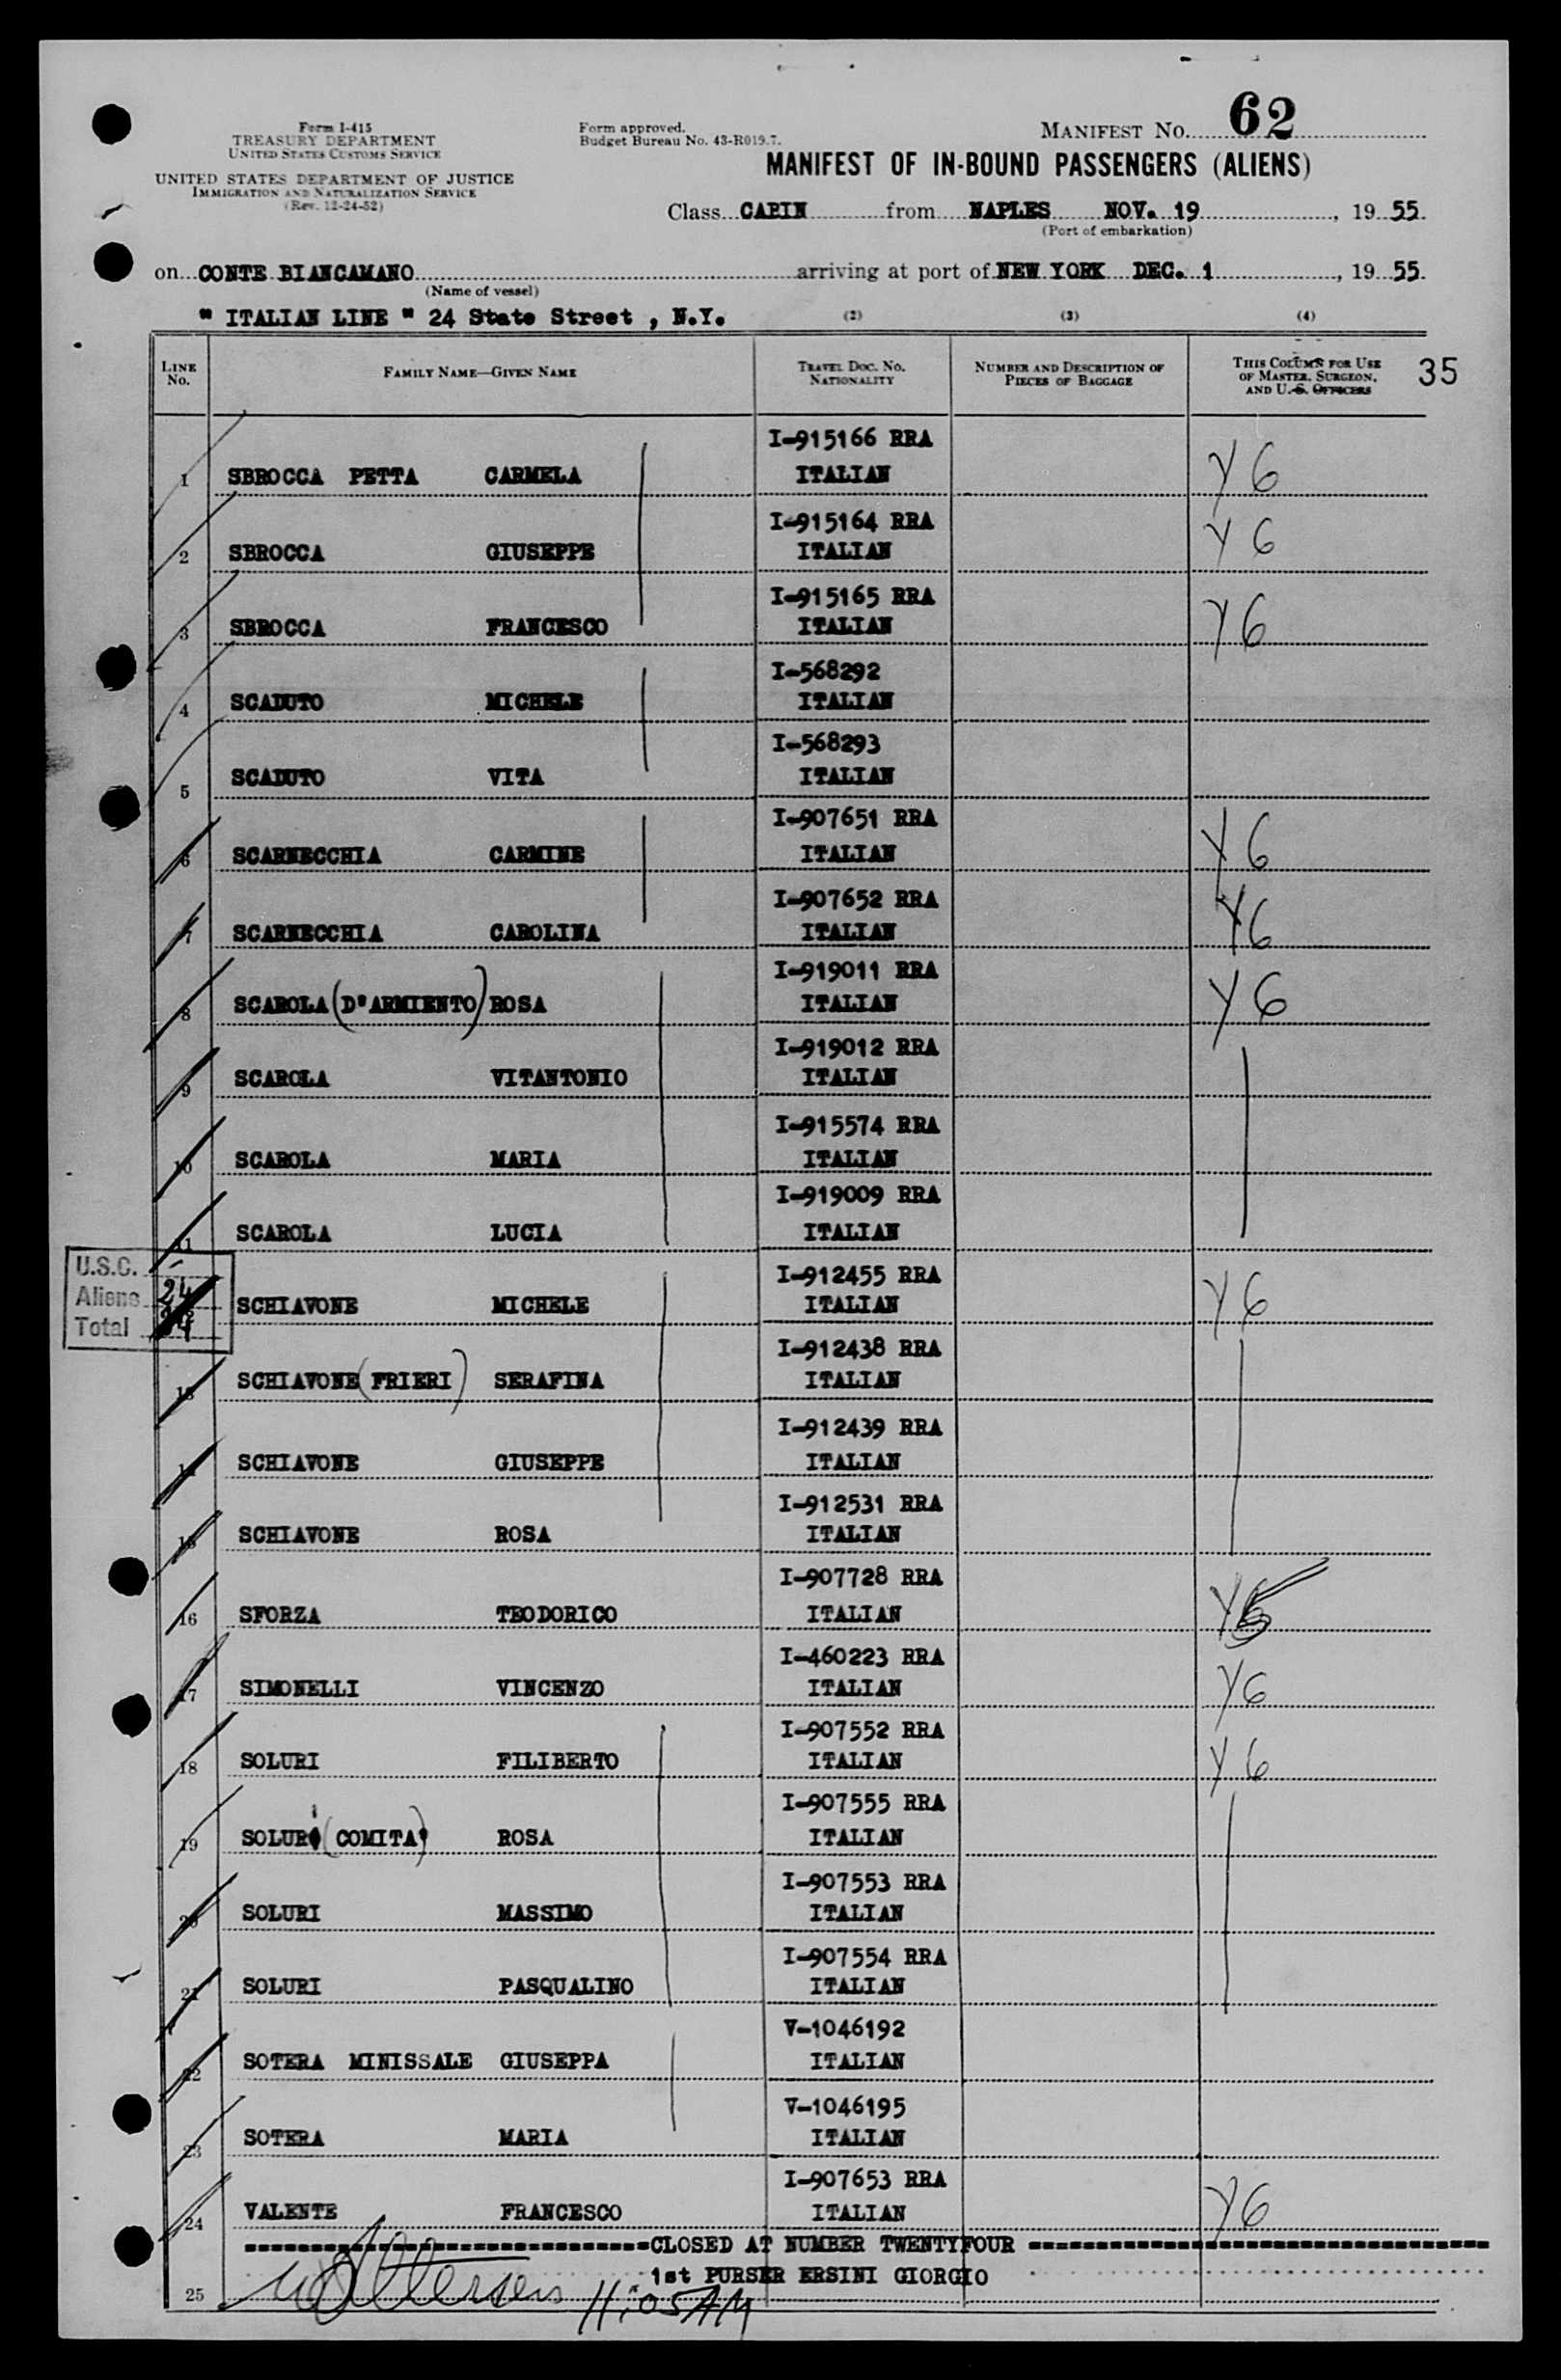 Form I-415
TREASURY DEPARTMENT
UNITED STATES CUSTOMS SERVICE
UNITED STATES DEPARTMENT OF JUSTICE
IMMIGRATION AND NATURALIZATION SERVICE
(Rev. 12-24-52)
Form approved.
Budget Bureau No. 43-R019.7.
MANIFEST NO. 62
MANIFEST OF IN-BOUND PASSENGERS (ALIENS)
Class CABIN from NAPLES NOV. 19, 1955.
(Port of embarkation)
on CONTE BIANCAMANO arriving at port of NEW YORK DEC. 1, 1955.
(Name of vessel)
" ITALIAN LINE " 24 State Street , N.Y. (2) (3) (4)
LINE No. FAMILY NAME—GIVEN NAME TRAVEL DOC. NO. NATIONALITY NUMBER AND DESCRIPTION OF PIECES OF BAGGAGE THIS COLUMN FOR USE OF MASTER, SURGEON, AND U. S. OFFICERS 35
I-915166 RRA
1 SBROCCA PETTA CARMELA ITALIAN Y6
I-915164 RRA
2 SBROCCA GIUSEPPE ITALIAN Y6
I-915165 RRA
3 SBROCCA FRANCESCO ITALIAN Y6
I-568292
4 SCADUTO MICHELE ITALIAN
I-568293
5 SCADUTO VITA ITALIAN
I-907651 RRA
6 SCARNECCHIA CARMINE ITALIAN Y6
I-907652 RRA
7 SCARNECCHIA CAROLINA ITALIAN Y6
I-919011 RRA
8 SCAROLA (D'ARMIENTO) ROSA ITALIAN Y6
I-919012 RRA
9 SCAROLA VITANTONIO ITALIAN
I-915574 RRA
10 SCAROLA MARIA ITALIAN
I-919009 RRA
11 SCAROLA LUCIA ITALIAN
U.S.C. -
Aliens 24
Total 24
I-912455 RRA
SCHIAVONE MICHELE ITALIAN Y6
I-912438 RRA
13 SCHIAVONE (FRIERI) SERAFINA ITALIAN
I-912439 RRA
14 SCHIAVONE GIUSEPPE ITALIAN
I-912531 RRA
15 SCHIAVONE ROSA ITALIAN
I-907728 RRA
16 SFORZA TEODORICO ITALIAN
I-460223 RRA
17 SIMONELLI VINCENZO ITALIAN Y6
I-907552 RRA
18 SOLURI FILIBERTO ITALIAN Y6
I-907555 RRA
19 SOLURI (COMITA) ROSA ITALIAN
I-907553 RRA
20 SOLURI MASSIMO ITALIAN
I-907554 RRA
21 SOLURI PASQUALINO ITALIAN
V-1046192
22 SOTERA MINISSALE GIUSEPPA ITALIAN
V-1046195
23 SOTERA MARIA ITALIAN
I-907653 RRA
24 VALENTE FRANCESCO ITALIAN Y6
CLOSED AT NUMBER TWENTYFOUR
1st PURSER ERSINI GIORGIO
25 11:05AM